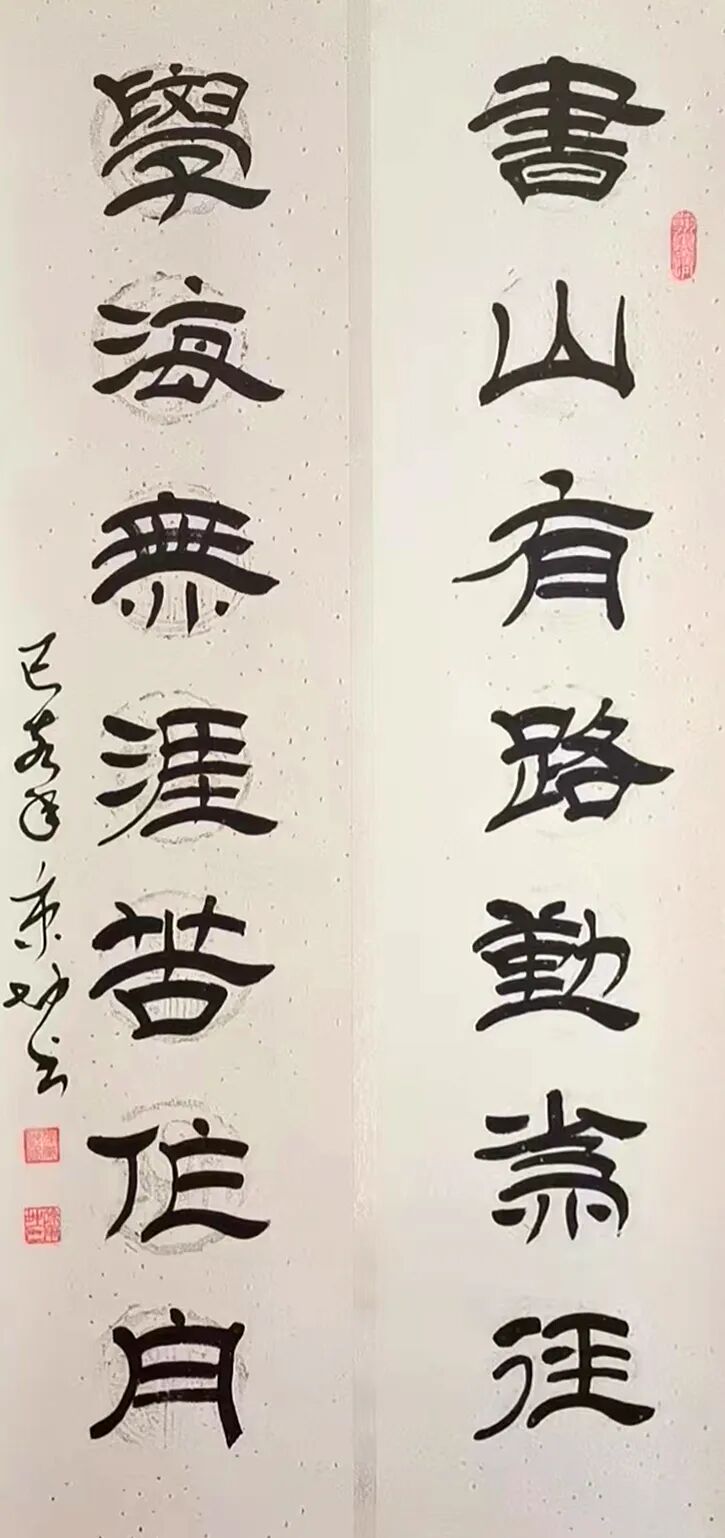 書山有路勤為徑
學海無涯苦作舟
己亥年